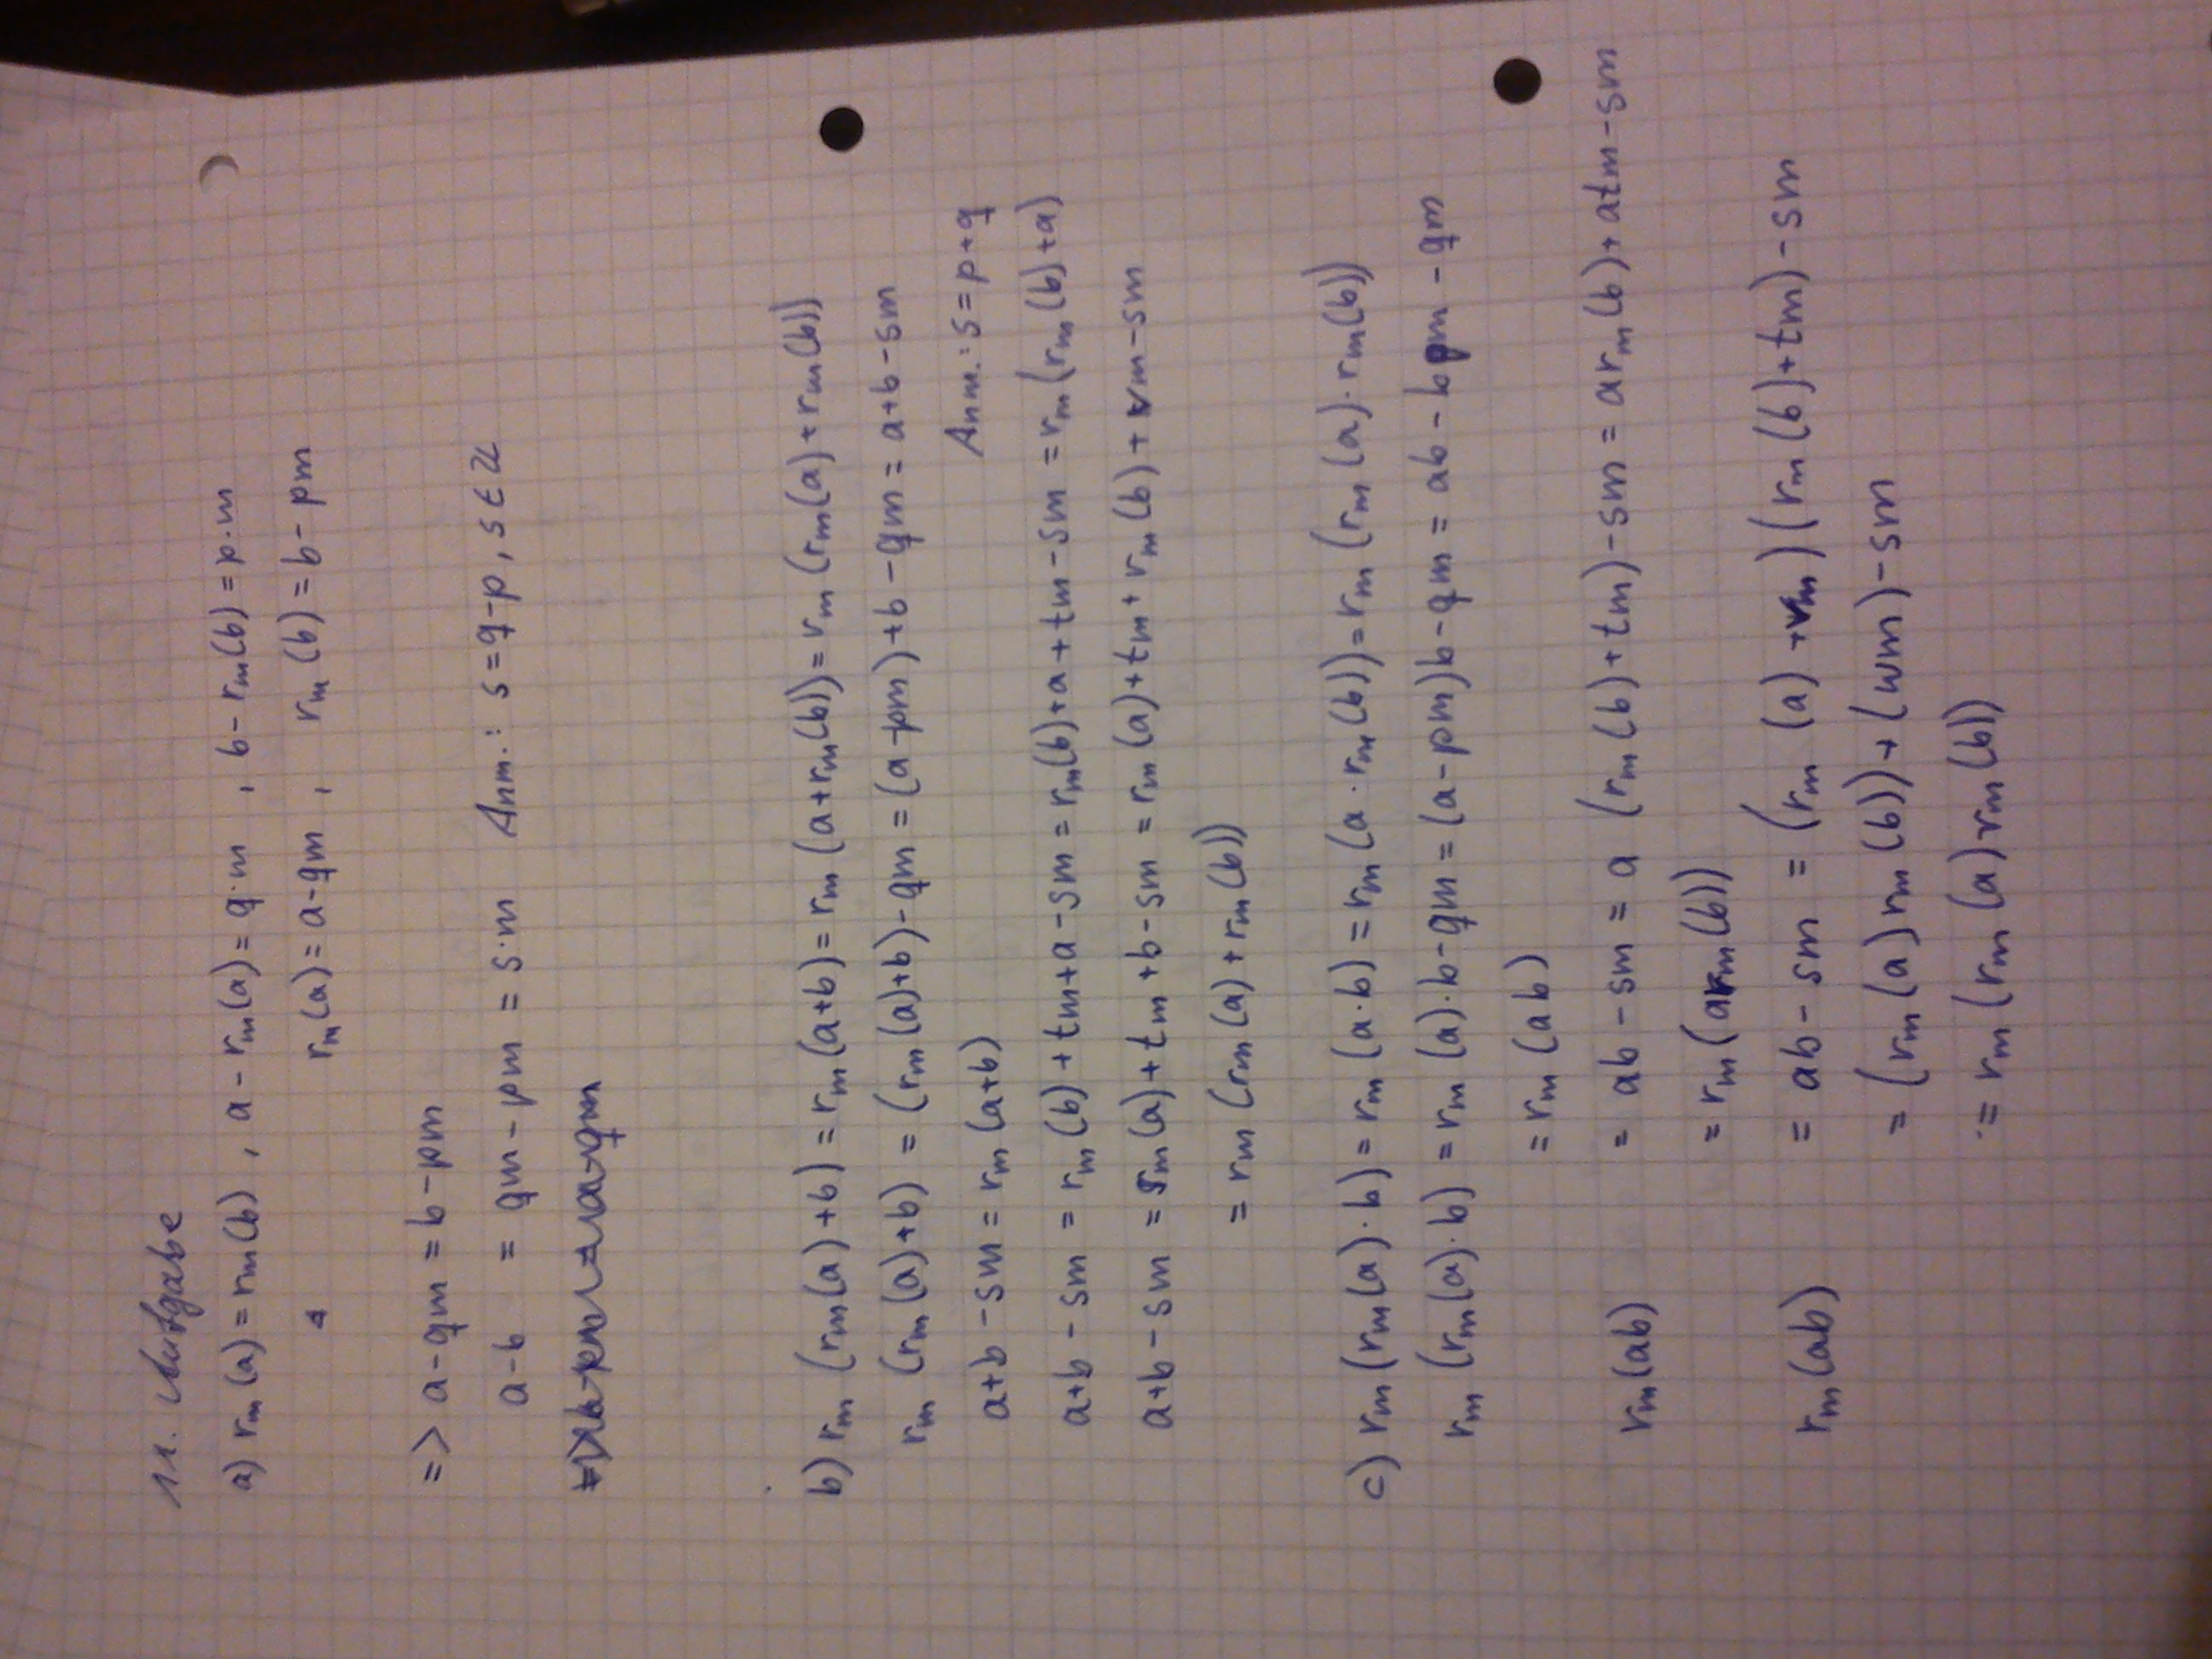 11. Aufgabe
a) rₘ(a) = rₘ(b) , a - rₘ(a) = q·m , b - rₘ(b) = p·m
rₘ(a) = a - qm , rₘ(b) = b - pm
=> a - qm = b - pm
a - b = qm - pm = s·m Anm.: s = q - p, s ∈ ℤ
b) rₘ(rₘ(a) + b) = rₘ(a+b) = rₘ(a + rₘ(b)) = rₘ(rₘ(a) + rₘ(b))
rₘ(rₘ(a) + b) = (rₘ(a) + b) - qm = (a - pm) + b - qm = a + b - sm
Anm.: s = p + q
a+b - sm = rₘ(a+b)
a+b - sm = rₘ(b) + tm + a - sm = rₘ(b) + a + tm - sm = rₘ(rₘ(b) + a)
a+b - sm = rₘ(a) + tm + b - sm = rₘ(a) + tm + rₘ(b) + vm - sm
= rₘ(rₘ(a) + rₘ(b))
c) rₘ(rₘ(a)·b) = rₘ(a·b) = rₘ(a·rₘ(b)) = rₘ(rₘ(a)·rₘ(b))
rₘ(rₘ(a)·b) = rₘ(a)·b - qm = (a - pm)b - qm = ab - bpm - qm
= rₘ(ab)
rₘ(ab) = ab - sm = a (rₘ(b) + tm) - sm = arₘ(b) + atm - sm
= rₘ(arₘ(b))
rₘ(ab) = ab - sm = (rₘ(a) + vm)(rₘ(b) + tm) - sm
= (rₘ(a) rₘ(b)) + (wm) - sm
= rₘ(rₘ(a) rₘ(b))